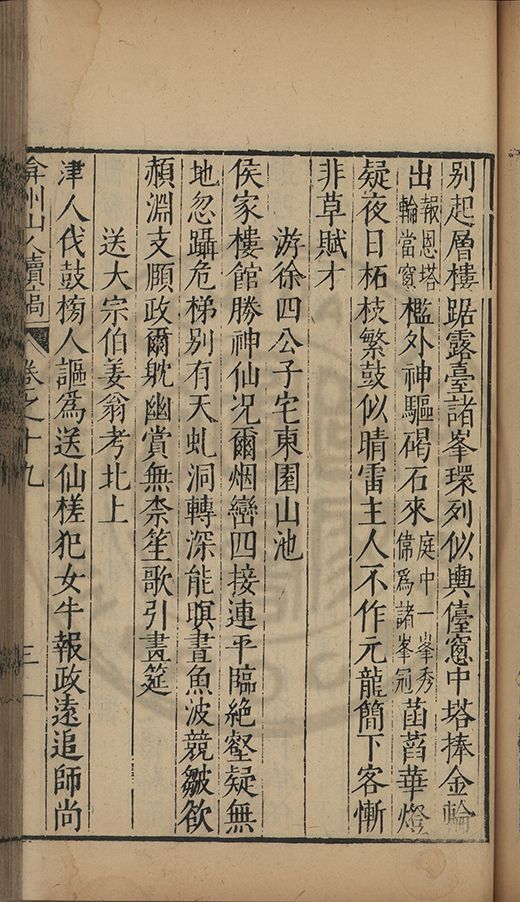 别起層樓踞露臺諸峯環列似輿儓窻中塔捧金輪
出報恩塔輪當窻檻外神驅碣石來庭中一峯秀偉爲諸峯冠菡萏華燈
疑夜日柘枝繁鼓似晴雷主人不作元龍簡下客慚
非草賦才
游徐四公子宅東園山池
侯家樓館勝神仙况爾烟巒四接連平臨絶壑疑無
地忽躡危梯别有天虬洞轉深能暝晝魚波競皺欲
赬淵支頤政爾躭幽賞無柰笙歌引畫筵
送大宗伯姜翁考北上
津人伐鼓榜人謳爲送仙槎犯女牛報政遠追師尚
弇州山人續稿 卷之十九 三